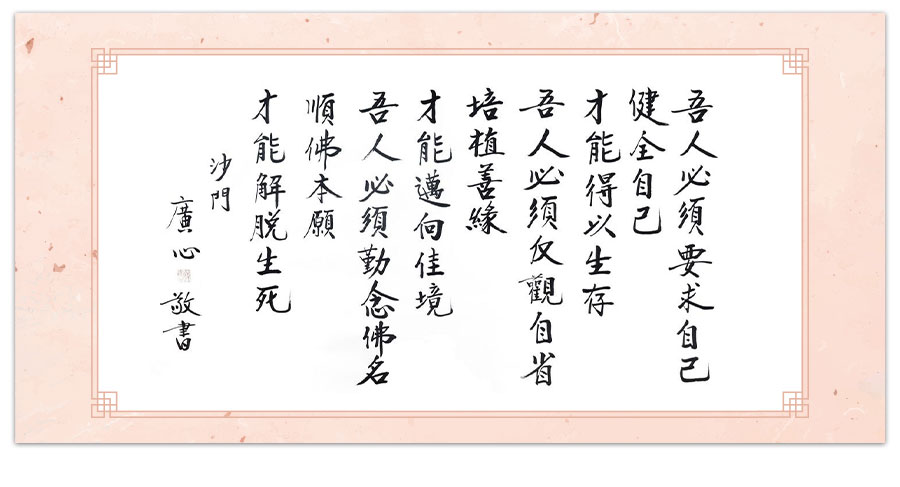 吾人必須要求自己
健全自己
才能得以生存
吾人必須反觀自省
培植善緣
才能邁向佳境
吾人必須勤念佛名
順佛本願
才能解脫生死
沙門
廣心 敬書